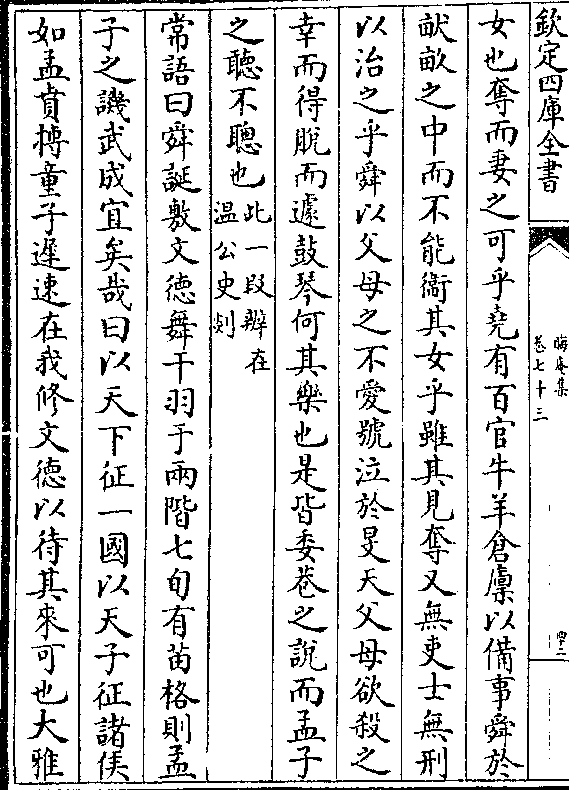 欽定四庫全書
晦庵集
卷七十三
四二
女也奪而妻之可乎堯有百官牛羊倉廩以備事舜於
畎畝之中而不能衞其女乎雖其見奪又無吏士無刑
以治之乎舜以父母之不愛號泣於旻天父母欲殺之
幸而得脫而遽鼓琴何其樂也是皆委巷之說而孟子
之聽不聰也此一段辨在
温公史剡
常語曰舜誕敷文德舞干羽于兩階七旬有苗格則孟
子之譏武成宜矣哉曰以天下征一國以天子征諸侯
如孟賁搏童子遲速在我修文德以待其來可也大雅